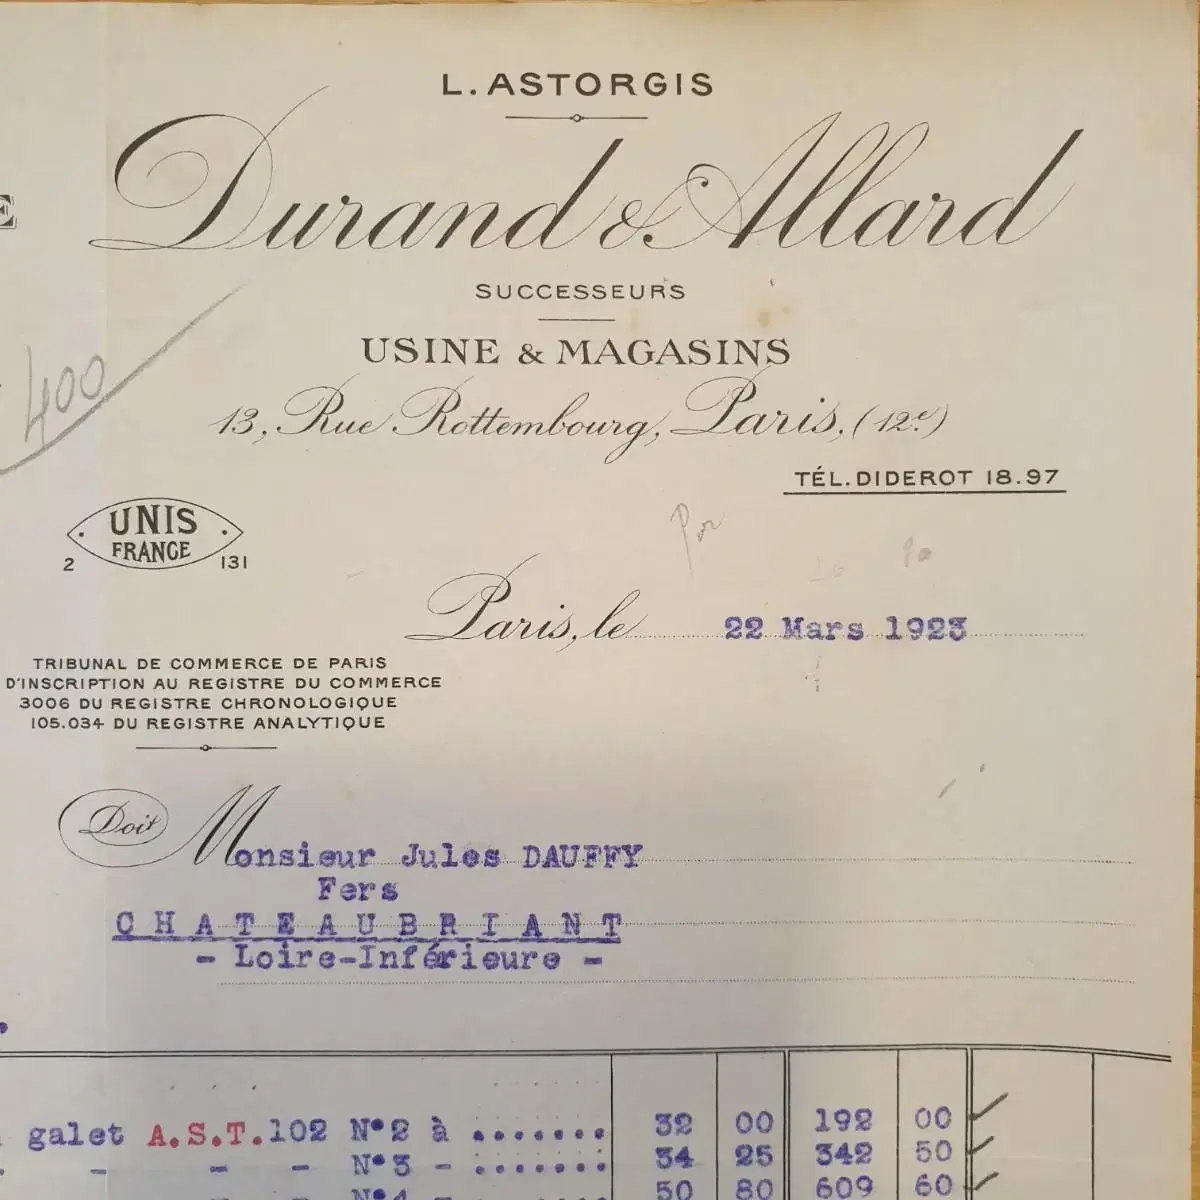 L. ASTORGIS
Durand & Allard
E
SUCCESSEURS
USINE & MAGASINS
400
13, Rue Rottembourg, Paris, (12e)
TÉL. DIDEROT 18.97
UNIS
FRANCE
2 131
Paris, le 22 Mars 1923
TRIBUNAL DE COMMERCE DE PARIS
D'INSCRIPTION AU REGISTRE DU COMMERCE
3006 DU REGISTRE CHRONOLOGIQUE
105.034 DU REGISTRE ANALYTIQUE
Doit Monsieur Jules DAUFFY
Fers
CHATEAUBRIANT
- Loire-Inférieure -
galet A.S.T.102 N°2 à ....... 32 00 192 00
- - - - N°3 - ....... 34 25 342 50
- - N°4 50 80 609 60